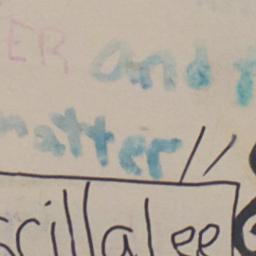 ER and
matter
scillalee